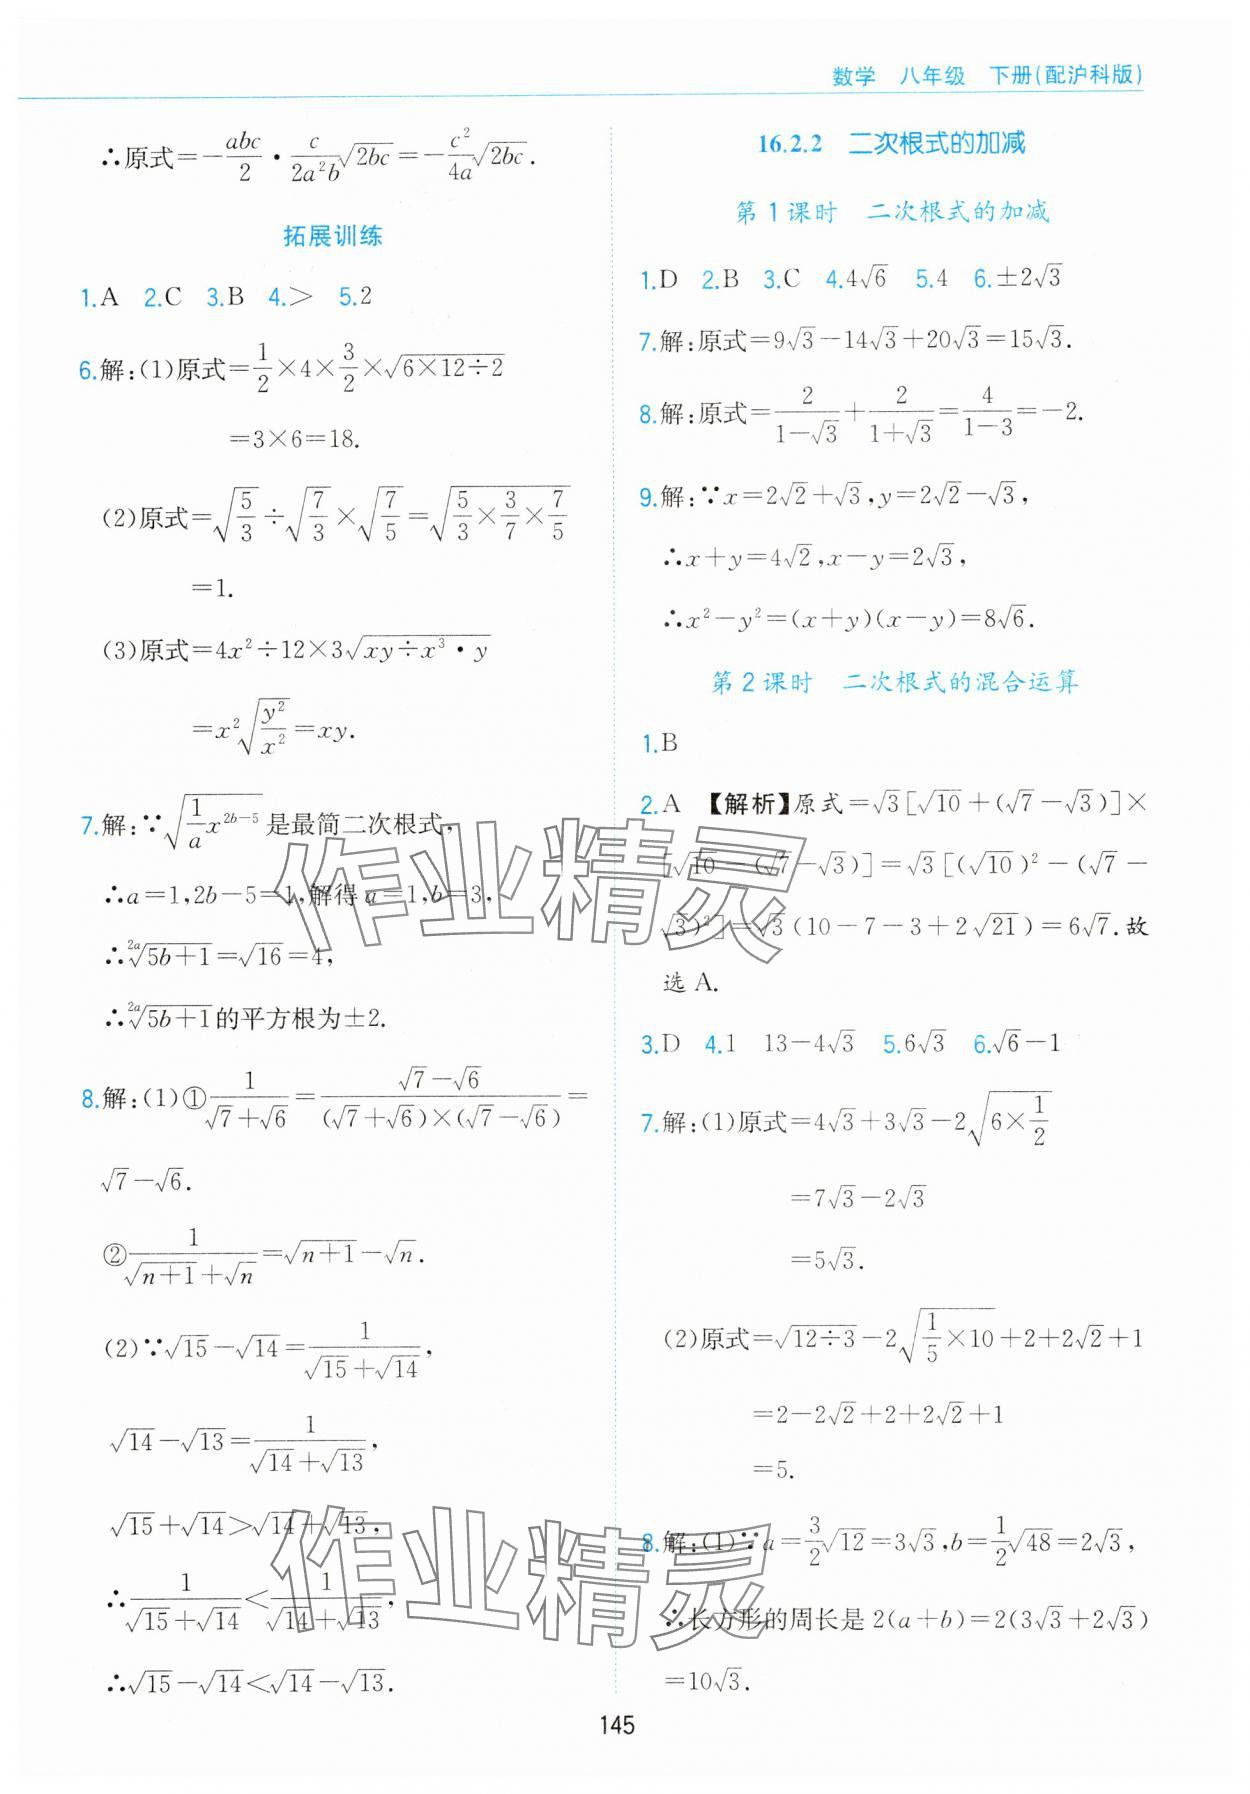 数学 八年级 下册(配沪科版)
∴原式=-abc/2·c/(2a²b)√(2bc)=-c²/(4a)√(2bc).
拓展训练
1.A 2.C 3.B 4.> 5.2
6.解:(1)原式=1/2×4×3/2×√(6×12÷2)
=3×6=18.
(2)原式=√(5/3)÷√(7/3)×√(7/5)=√(5/3×3/7×7/5)
=1.
(3)原式=4x²÷12×3√(xy÷x³·y)
=x²√(y²/x²)=xy.
7.解:∵√(1/a x^(2b-5))是最简二次根式,
∴a=1,2b-5=1,解得a=1,b=3,
∴^(2a)√(5b+1)=√16=4,
∴^(2a)√(5b+1)的平方根为±2.
8.解:(1)①1/(√7+√6)=(√7-√6)/((√7+√6)×(√7-√6))=
√7-√6.
②1/(√(n+1)+√n)=√(n+1)-√n.
(2)∵√15-√14=1/(√15+√14),
√14-√13=1/(√14+√13),
√15+√14>√14+√13,
∴1/(√15+√14)<1/(√14+√13),
∴√15-√14<√14-√13.
16.2.2 二次根式的加减
第1课时 二次根式的加减
1.D 2.B 3.C 4.4√6 5.4 6.±2√3
7.解:原式=9√3-14√3+20√3=15√3.
8.解:原式=2/(1-√3)+2/(1+√3)=4/(1-3)=-2.
9.解:∵x=2√2+√3,y=2√2-√3,
∴x+y=4√2,x-y=2√3,
∴x²-y²=(x+y)(x-y)=8√6.
第2课时 二次根式的混合运算
1.B
2.A 【解析】原式=√3[√10+(√7-√3)]×
[√10-(√7-√3)]=√3[(√10)²-(√7-
√3)²]=√3(10-7-3+2√21)=6√7.故
选A.
3.D 4.1 13-4√3 5.6√3 6.√6-1
7.解:(1)原式=4√3+3√3-2√(6×1/2)
=7√3-2√3
=5√3.
(2)原式=√(12÷3)-2√(1/5×10)+2+2√2+1
=2-2√2+2+2√2+1
=5.
8.解:(1)∵a=3/2√12=3√3,b=1/2√48=2√3,
∴长方形的周长是2(a+b)=2(3√3+2√3)
=10√3.
145
作业精灵
作业精灵